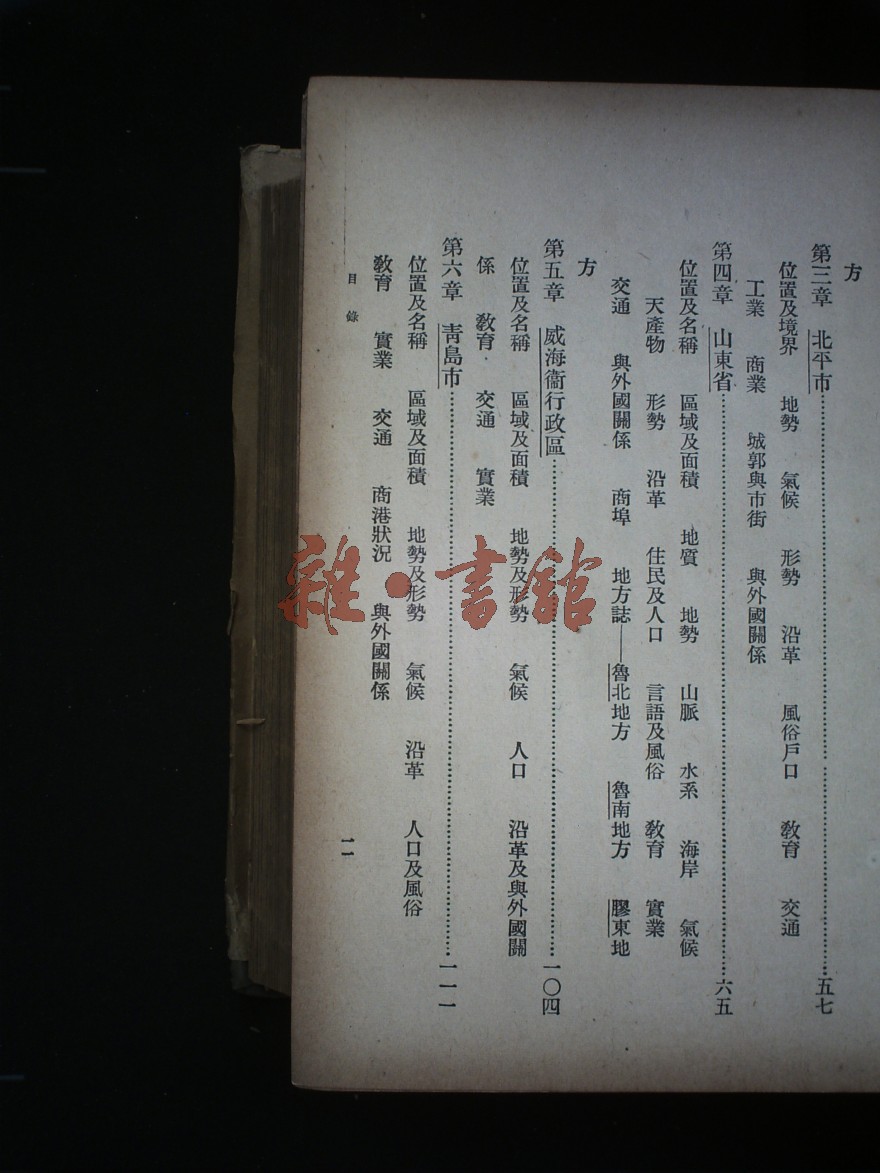 方
第三章 北平市……五七
位置及境界 地勢 氣候 形勢 沿革 風俗戶口 敎育 交通
工業 商業 城郭與市街 與外國關係
第四章 山東省……六五
位置及名稱 區域及面積 地質 地勢 山脈 水系 海岸 氣候
天產物 形勢 沿革 住民及人口 言語及風俗 敎育 實業
交通 與外國關係 商埠 地方誌——魯北地方 魯南地方 膠東地
方
第五章 威海衞行政區……一〇四
位置及名稱 區域及面積 地勢及形勢 氣候 人口 沿革及與外國關
係 敎育 交通 實業
第六章 靑島市……一一一
位置及名稱 區域及面積 地勢及形勢 氣候 沿革 人口及風俗
敎育 實業 交通 商港狀況 與外國關係
目錄
二
雜·書館